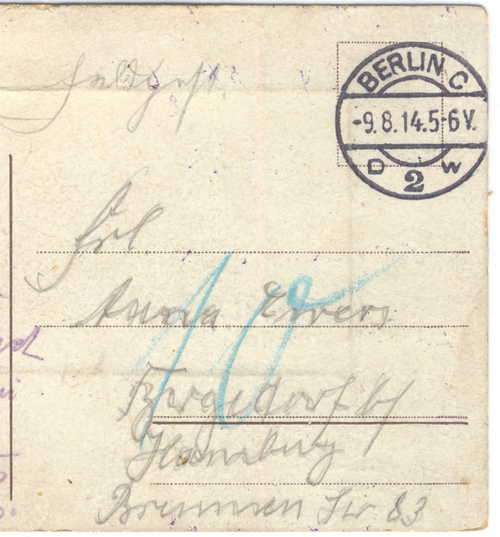 Feldpost
BERLIN C
-9.8.14.5-6V.
D 2 W
Frl
Anna Ewers
Bergedorf b/
Hamburg
Brunnen Str 83
10